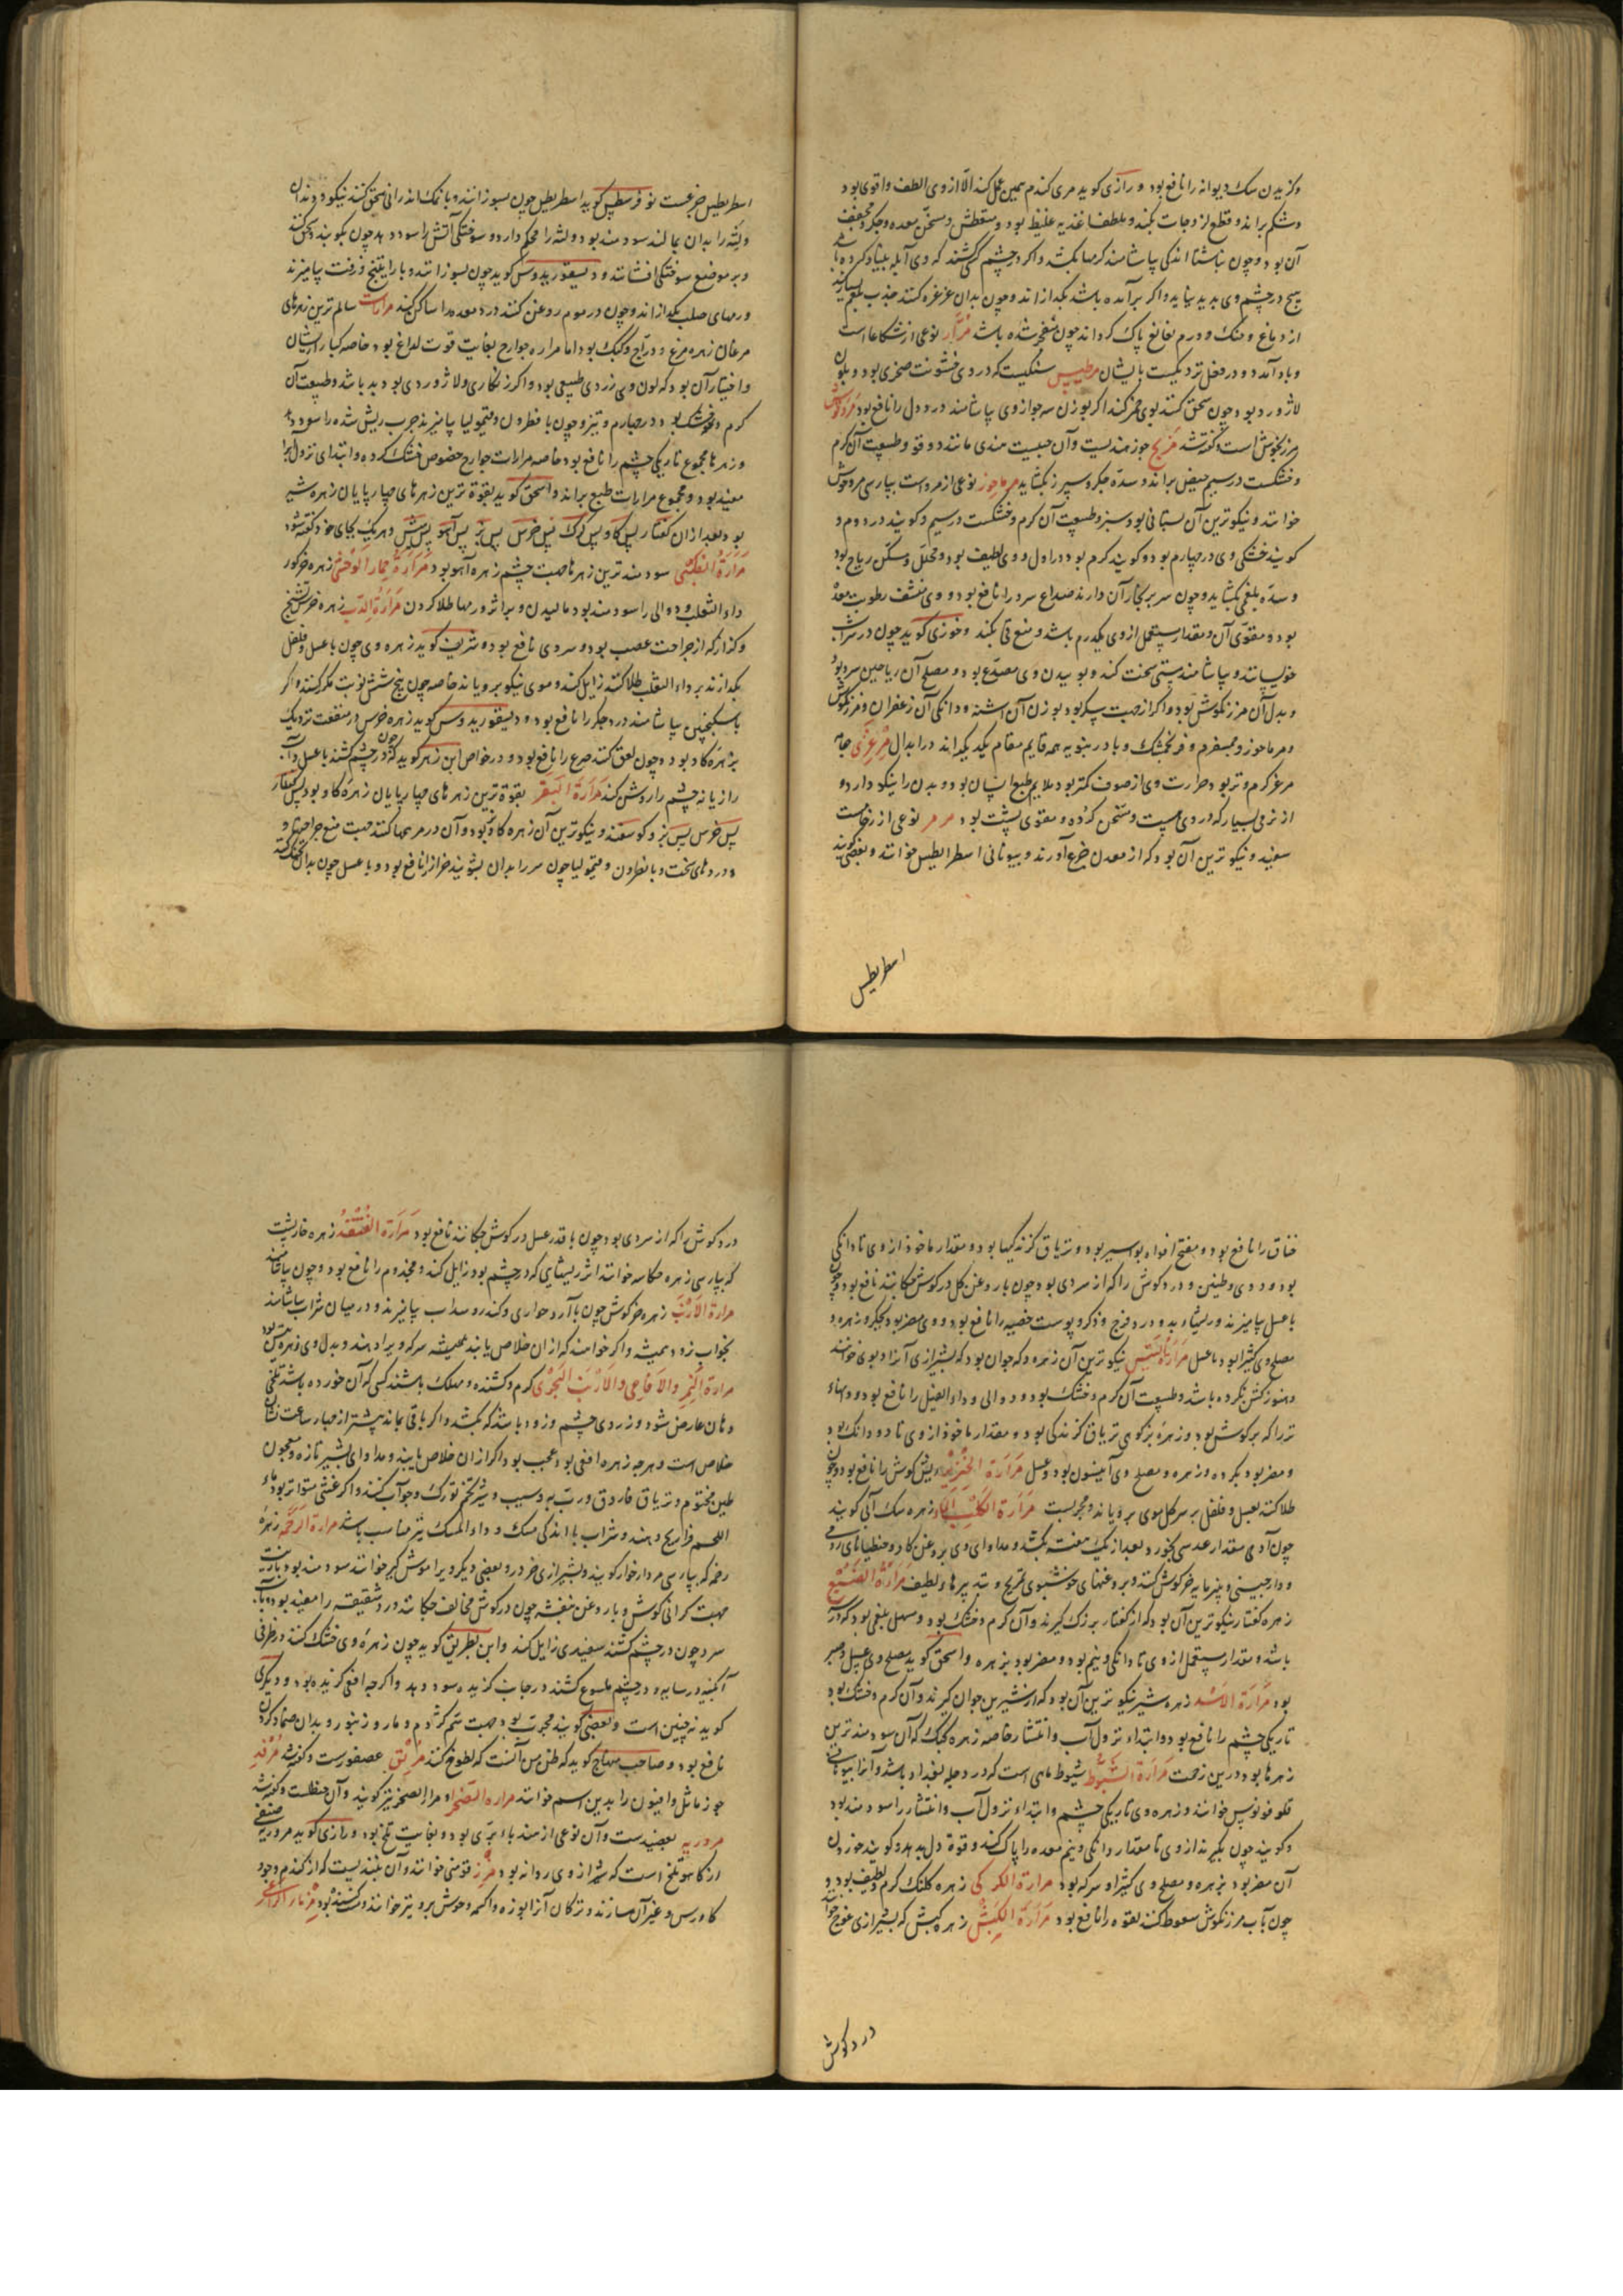 وکزیدن سک دیوانه را نافع بود و رازی کوید مری کندم همین عمل کند الّا از وی الطف واقوی بود
وشکم براند و قطع لزوجات بکند و ملطف اغذیه غلیظ بود و معطش و مسخن معده و جکر و مجفف
آن بود و چون بناشتا اندکی بیاشامند کرمها بکشد و اکر در چشم کسی کشند که وی آبله بنیاد کرده باشد
هیچ در چشم وی بدید نیاید و اکر برآمده باشد بکدازاند و چون بدان غرغره کنند جذب بلغم بسیار بکند
از دماغ و حنک و ورم نغانغ پاک کرداند چون منفجر شده باشد مُرّار نوعی از شکاعا است
و باد آمد و در فعل نزدیکست بایشان مرطیس سنکیست که در وی خشونت صخری بود و بلون
لاژورد بود چون سحق کنند بوی خمر کند اکر بوزن سه جو از وی بیاشامند درد دل را نافع بود مردقوش
مرزنجوش است و کفته شد مریح جوز هندیست و آن حبیست هندی مانند دوقو و طبیعت آن کرم
و خشکست در سیم حیض براند و سدّه جکر و سپرز بکشاید مرماحوز نوعی از مرو است بپارسی مروخوش
خوانند و نیکوترین آن بستانی بود سبز و طبیعت آن کرم و خشکست در سیم و کویند در دوم و
کویند خشکی وی در چهارم بود و کویند کرم بود در اول و وی لطیف بود و محلل و مسکن ریاح بود
و سدّه بلغمی بکشاید و چون سر بر بخار آن دارند صداع سرد را نافع بود و وی منشف رطوبت معده
بود و مقوّی آن و مقدار مستعمل از وی یکدرم باشد و منع قی بکند و خوزی کوید چون در شراب
خیسانند و بیاشامند مستی سخت کند و بوییدن وی مصدّع بود و مصلح آن ریاحین سرد بود
و بدل آن مرزنکوش بود و اکر از جهت سپرز بود بوزن آن اشنه و دانکی آن زعفران و مرزنکوش
و مرماحوز و ممسفرم و فرنجمشک و بادرنبویه همه قایم مقام یکدیکراند در ابدال مِرعِزّی جامه
مرعز کرم و تر بود حرارت وی از صوف کمتر بود ملایم طبع انسان بود و بدن را نیکو دارد و
از نرمی بسیار که در وی هست و مسخن کرده و مقوی پشت بود مرمر نوعی از رخامست
سفید و نیکوترین آن بود که از معدن جزع آورند و بیونانی اسطرابطیس خوانند و بعضی کویند
اسطربطیس
اسطربطیس جزعست نوفرسطیس کوید اسطربطیس چون بسوزانند و با نمک اندرانی سحق کنند نیکو و دندان
و لثه را بدان بمالند سودمند بود و لثه را محکم دارد و سوختکی آتش را سود دهد چون بکوبند و سحق کنند
و بر موضع سوختکی افشانند و دیسقوریدوس کوید چون بسوزانند و با راتینج و زفت بیامیزند
ورمهای صلب بکدازاند و چون در موم روغن کنند درد معده را ساکن کند مرارات سالم ترین زهرهای
مرغان زهره مرغ و درّاج و کبک بود اما مراره جوارح بغایت قوت لداغ بود خاصه کبار ایشان
و اختیار آن بود که لون وی زردی طبیعی بود و اکر زنکاری و لاژوردی بود بد باشد و طبیعت آن
کرم و خشک بود در چهارم و تیز و چون با نطرون و قیمولیا بیامیزند جرب ریش شده را سود دهد
و زهرها مجموع تاریکی چشم را نافع بود خاصه مرارات جوارح خصوص خشک کرده و ابتدای نزول آب را
مفید بود و مجموع مرارات طبع براند و اسحق کوید بقوة ترین زهرهای چهارپایان زهره شیر
بود بعد از آن کفتار پس کاو پس کرک پس خرس پس بز پس آهو پس میش و هر یک بجای خود کفته شود
مَرارَة الظَبْی سودمندترین زهرها جهت چشم زهره آهو بود مَرارَة حِمار الوَحْش زهره خرکور
داء الثعلب و دوالی را سودمند بود مالیدن و بر اثر ورمها طلا کردن مَرارَة الدُّب زهره خرس تشنج
و کزاز که از جراحت عصب بود و سردی نافع بود و شریف کوید زهره وی چون با عسل و فلفل
بکدازند بر داء الثعلب طلا کنند زایل کند و موی نیکو برویاند خاصه چون پنج شش نوبت مکرر کنند و اکر
باسکنجبین بیاشامند درد جکر را نافع بود و دیسقوریدوس کوید زهره خرس در منفعت نزدیک
بزهره کاو بود و چون لعق کنند صرع را نافع بود و در خواص ابن زهر کوید که چون در چشم کشند با عسل و آب
رازیانه چشم را روشن کند مَرارَة البَقَر بقوة ترین زهرهای چهارپایان زهره کاو بود پس کفتار
پس خرس پس بز و کوسفند و نیکوترین آن زهره کاو بود و آن در مرهمها کنند جهت منع جراحتها و
ورمهای سخت و با نطرون و قیمولیا چون سر را بدان بشویند حزاز را نافع بود و با عسل چون بدان تحنک کنند
خناق را نافع بود و مفتح افواه بواسیر بود و تریاق کزندکیها بود و مقدار ماخوذ از وی تا دانکی
بود و دوی و طنین و درد کوش را که از سردی بود چون با روغن کل در کوش چکانند نافع بود و چون
با عسل بیامیزند و ریشها بد و درد فرج و ذکر و پوست خصیه را نافع بود و وی مضر بود بجکر و زهره و
مصلح وی کثیرا بود با عسل مَرارَة التَیس نیکوترین آن زهره که جوان بود که بشیرازی آنرا دبوی خوانند
و هنوز کشن نکرده باشد و طبیعت آن کرم و خشک بود و دوالی و داء الفیل را نافع بود و دمهاء
تر را که بر کوش بود و زهره بز کوهی تریاق کزندکی بود و مقدار ماخوذ از وی تا دو دانک بود
و مضر بود بکرده و زهره و مصلح وی انیسون بود و عسل مَرارَة الخِنزیر ریش کوش را نافع بود و چون
طلا کنند بعسل و فلفل بر سر کل موی برویاند و مجربست مَرارَة الکَلْب الماء زهره سک آبی کویند
چون آدمی مقدار عدسی بخورد بعد از یک هفته بکشد و مداوای وی بروغن کاو و جنطیانای رومی
و دارچینی و پنیرمایه خرکوش کنند و بروغنهای خوشبوی تمریخ و تدبیرها و لطیف مَرارَة الضَبُع
زهره کفتار نیکوترین آن بود که از کفتار بزرک کیرند و آن کرم و خشک بود و مسهل بلغمی بود که در
باشد و مقدار مستعمل از وی تا دانکی و نیم بود و مضر بود بزهره و اسحق کوید مصلح وی عسل و صبر
بود مَرارَة الاَسَد زهره شیر نیکوترین آن بود که از شیرین جوان کیرند و آن کرم و خشک بود
تاریکی چشم را نافع بود و ابتداء نزول آب و انتشار خاصه زهره کبک که آن سودمندترین
زهرها بود درین زحمت مَرارَة الشبّوط شبوط ماهی است که در دجله بغداد باشد و آنرا بیونانی
قلوفونوس خوانند و زهره وی تاریکی چشم و ابتداء نزول آب و انتشار را سودمند بود
و کویند چون بکیرند از وی تا مقدار دانکی و نیم معده را پاک کند و قوة دل بدهد و کویند خوردن
آن مضر بود بزهره و مصلح وی کثیرا و سرکه بود مرارة الکرکی زهره کلنک کرم و لطیف بود و
چون بآب مرزنکوش سعوط کنند لقوه را نافع بود مَرارَة الکَبْش زهره کبش که بشیرازی غوج خوانند
درد کوش
درد کوش را که از سردی بود چون با قدر عسل در کوش چکانند نافع بود مَرارَة القُنفُذ زهره خارپشت
که بپارسی زهره حکاسه خوانند اثر ریشهایی که در چشم بود زایل کند و مجذوم را نافع بود و چون بیاشامند
مرارة الاَرْنَب زهره خرکوش چون با آرد حواری و کندر و سداب بیامیزند و در میان شراب بیاشامند
بخواب رود همیشه و اکر خواهند که از آن خلاص یابند همیشه سرکه ویرا دهند و بدل وی زهره تیس بود
مرارة النَمِر والاَفاعی والاَرنَب البَحْری کرم و کشنده و مهلک باشند کسی که آن خورده باشد تلخی
دهان عارض شود و زردی چشم و زود باشد که بکشد و اکر باقی بماند بیشتر از چهار ساعت نشان
خلاص است و هرچه زهره افعی بود عجب بود اکر از آن خلاص یابند و مداوای بشیر تازه و معجون
طین مختوم و تریاق فاروق و ربّ به و سیب و شیر تخم تورک و جو آب کنند و اکر غشی متواتر بود ماء
اللحم فراریج دهند و شراب با اندکی مسک و دواء المسک نیز مناسب باشد مرارة الرَخَمه زهره
رخمه که بپارسی مردارخوار کویند و بشیرازی خردرو و بعضی دیکر ویرا موش کیر خوانند سودمند بود با زیت
جهت کرانی کوش و با روغن بنفشه چون در کوش مخالف چکانند درد شقیقه را مفید بود و با آب
سرد چون در چشم کشند سفیدی زایل کند و ابن بطریق کوید چون زهره وی خشک کنند در ظرفی
آبکینه در سایه و در چشم ملسوع کشند در جانب کزیده سود دهد و اکرچه افعی کزیده بود و دیکری
کوید نه چنین است و بعضی کویند مجرّب بود جهت سمّ کژدم و مار و زنبور و بدان ضماد کردن
نافع بود و صاحب منهاج کوید که ظن من آنست که لطوخ کنند مُریق عصفورست و کفته شد مُرقد
جوز ماثل و افیون را بدین اسم خوانند مراره الصَخر و مرار الصخر نیز کویند و آن حنظلست و کفته شد
مروریه بعضیدست و آن نوعی از هندباء برّی بود و بغایت تلخ بود و رازی کوید مروریه صنفی
از کاهو تلخ است که شیر از وی روانه بود مِزر قومنی خوانند و آن نبیذیست که از کندم و جو و
کاورس و غیر آن سازند و ترکان آنرا بوزه و اکمه و خوش برو نیز خوانند و کفته شد بود مزمار الراعی